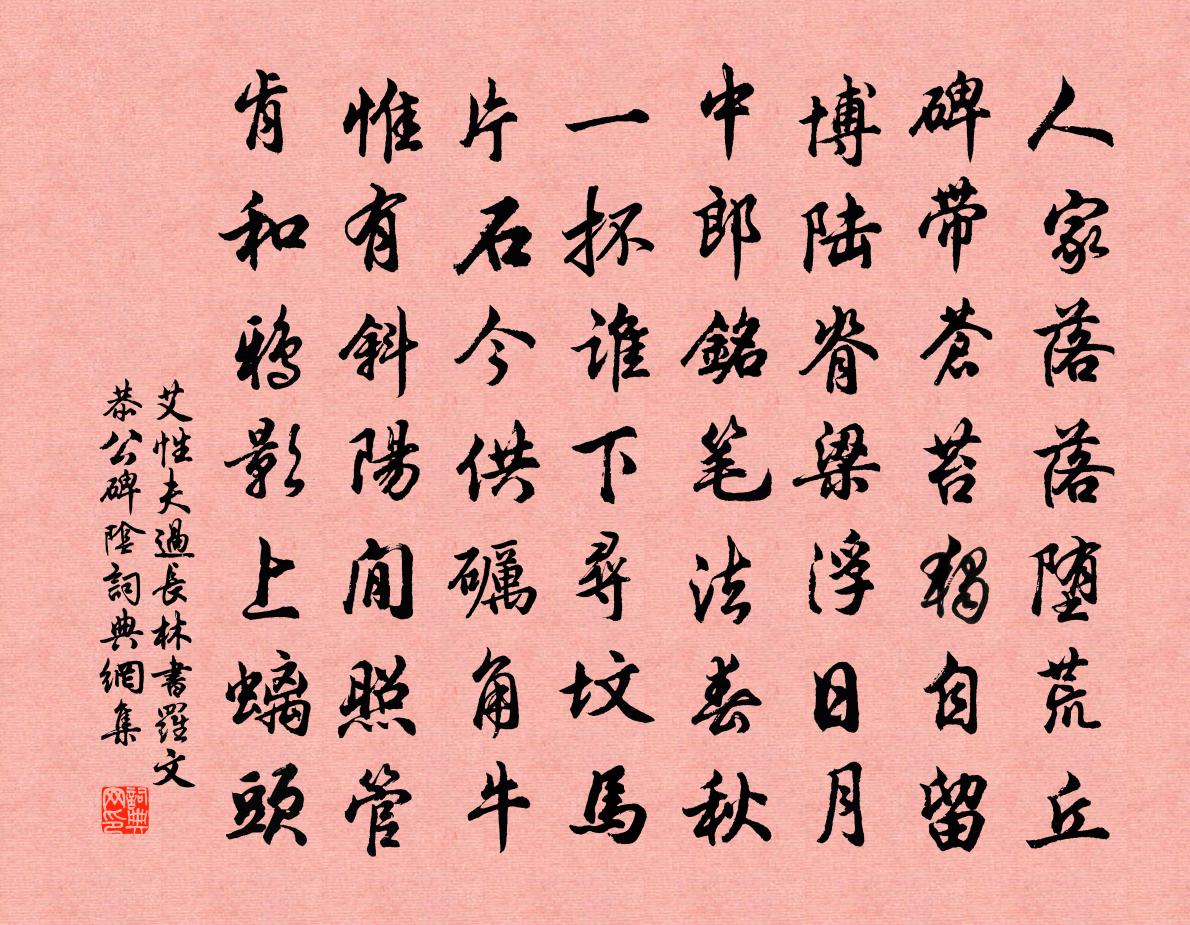 人家落落堕荒丘
碑带苍苔独自留
博陆脊梁浮日月
中郎銘笔法春秋
一抔谁下尋坟馬
片石今供礪角牛
惟有斜陽閒照管
肯和鴉影上螭頭
艾性夫過長林書羅文
恭公碑陰詞典網集
詞典网印